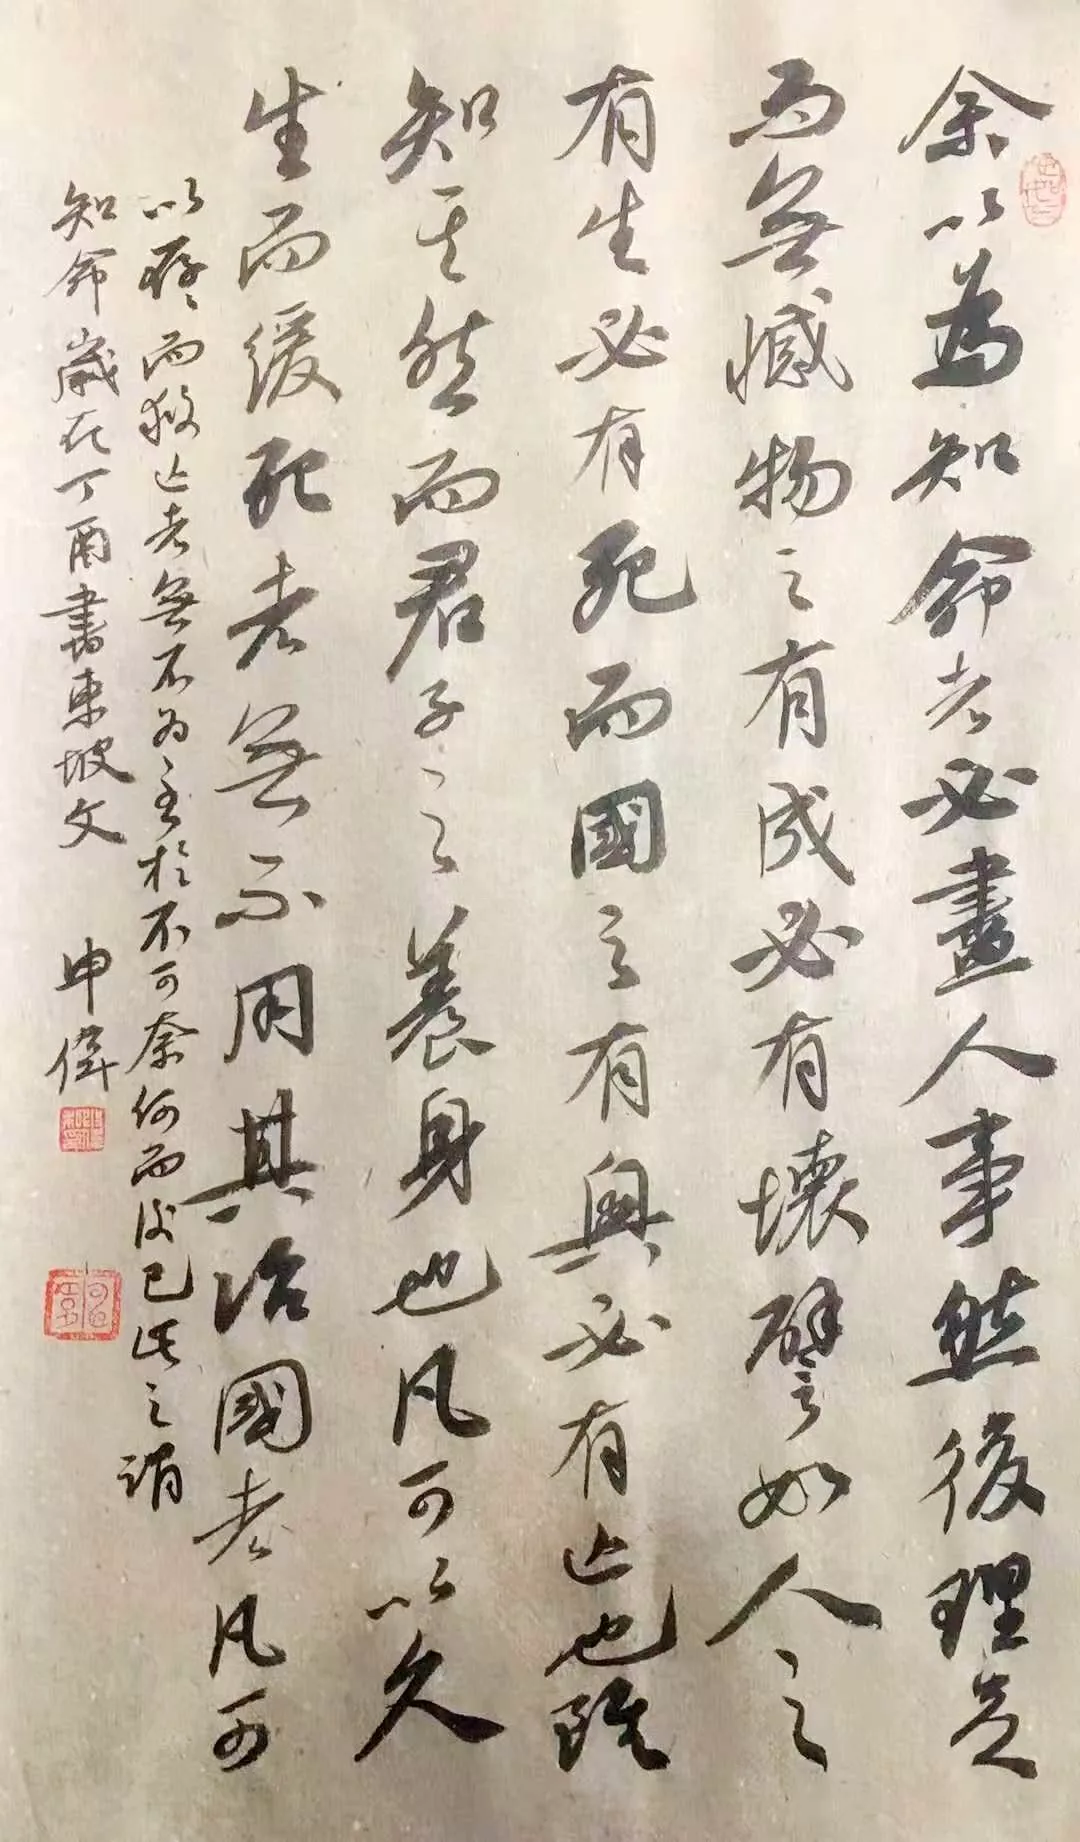 余以為知命者必盡人事然後理足
而無憾物之有成必有壞譬如人之
有生必有死而國之有興必有亡也雖
知其然而君子之養身也凡可以久
生而緩死者無不用其治國者凡可
以存〻而救亡者無不為至於不可奈何而後已此之謂
知命歲在丁酉書東坡文 申偉